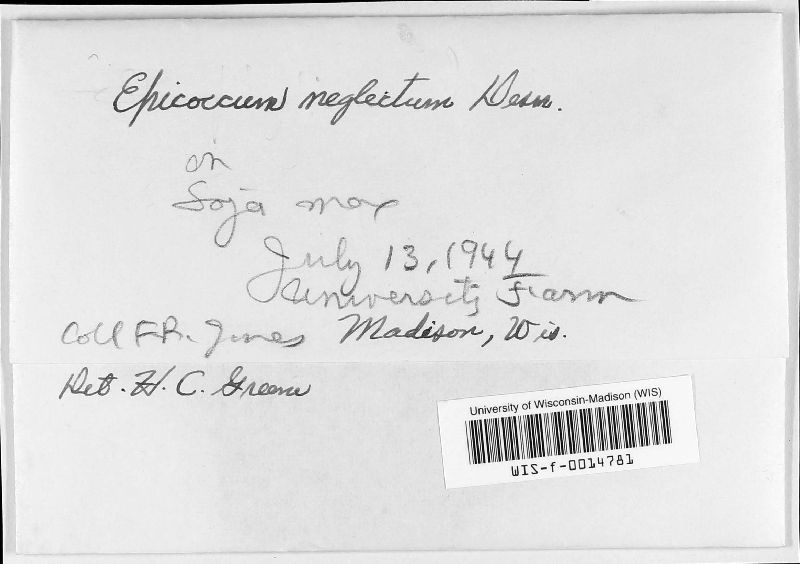 Epicoccum neglectum Desm.
on
Soja max
July 13, 1944
University Farm
Coll F.R. Jones Madison, Wis.
Det. H. C. Greene
University of Wisconsin-Madison (WIS)
WIS-f-0014781